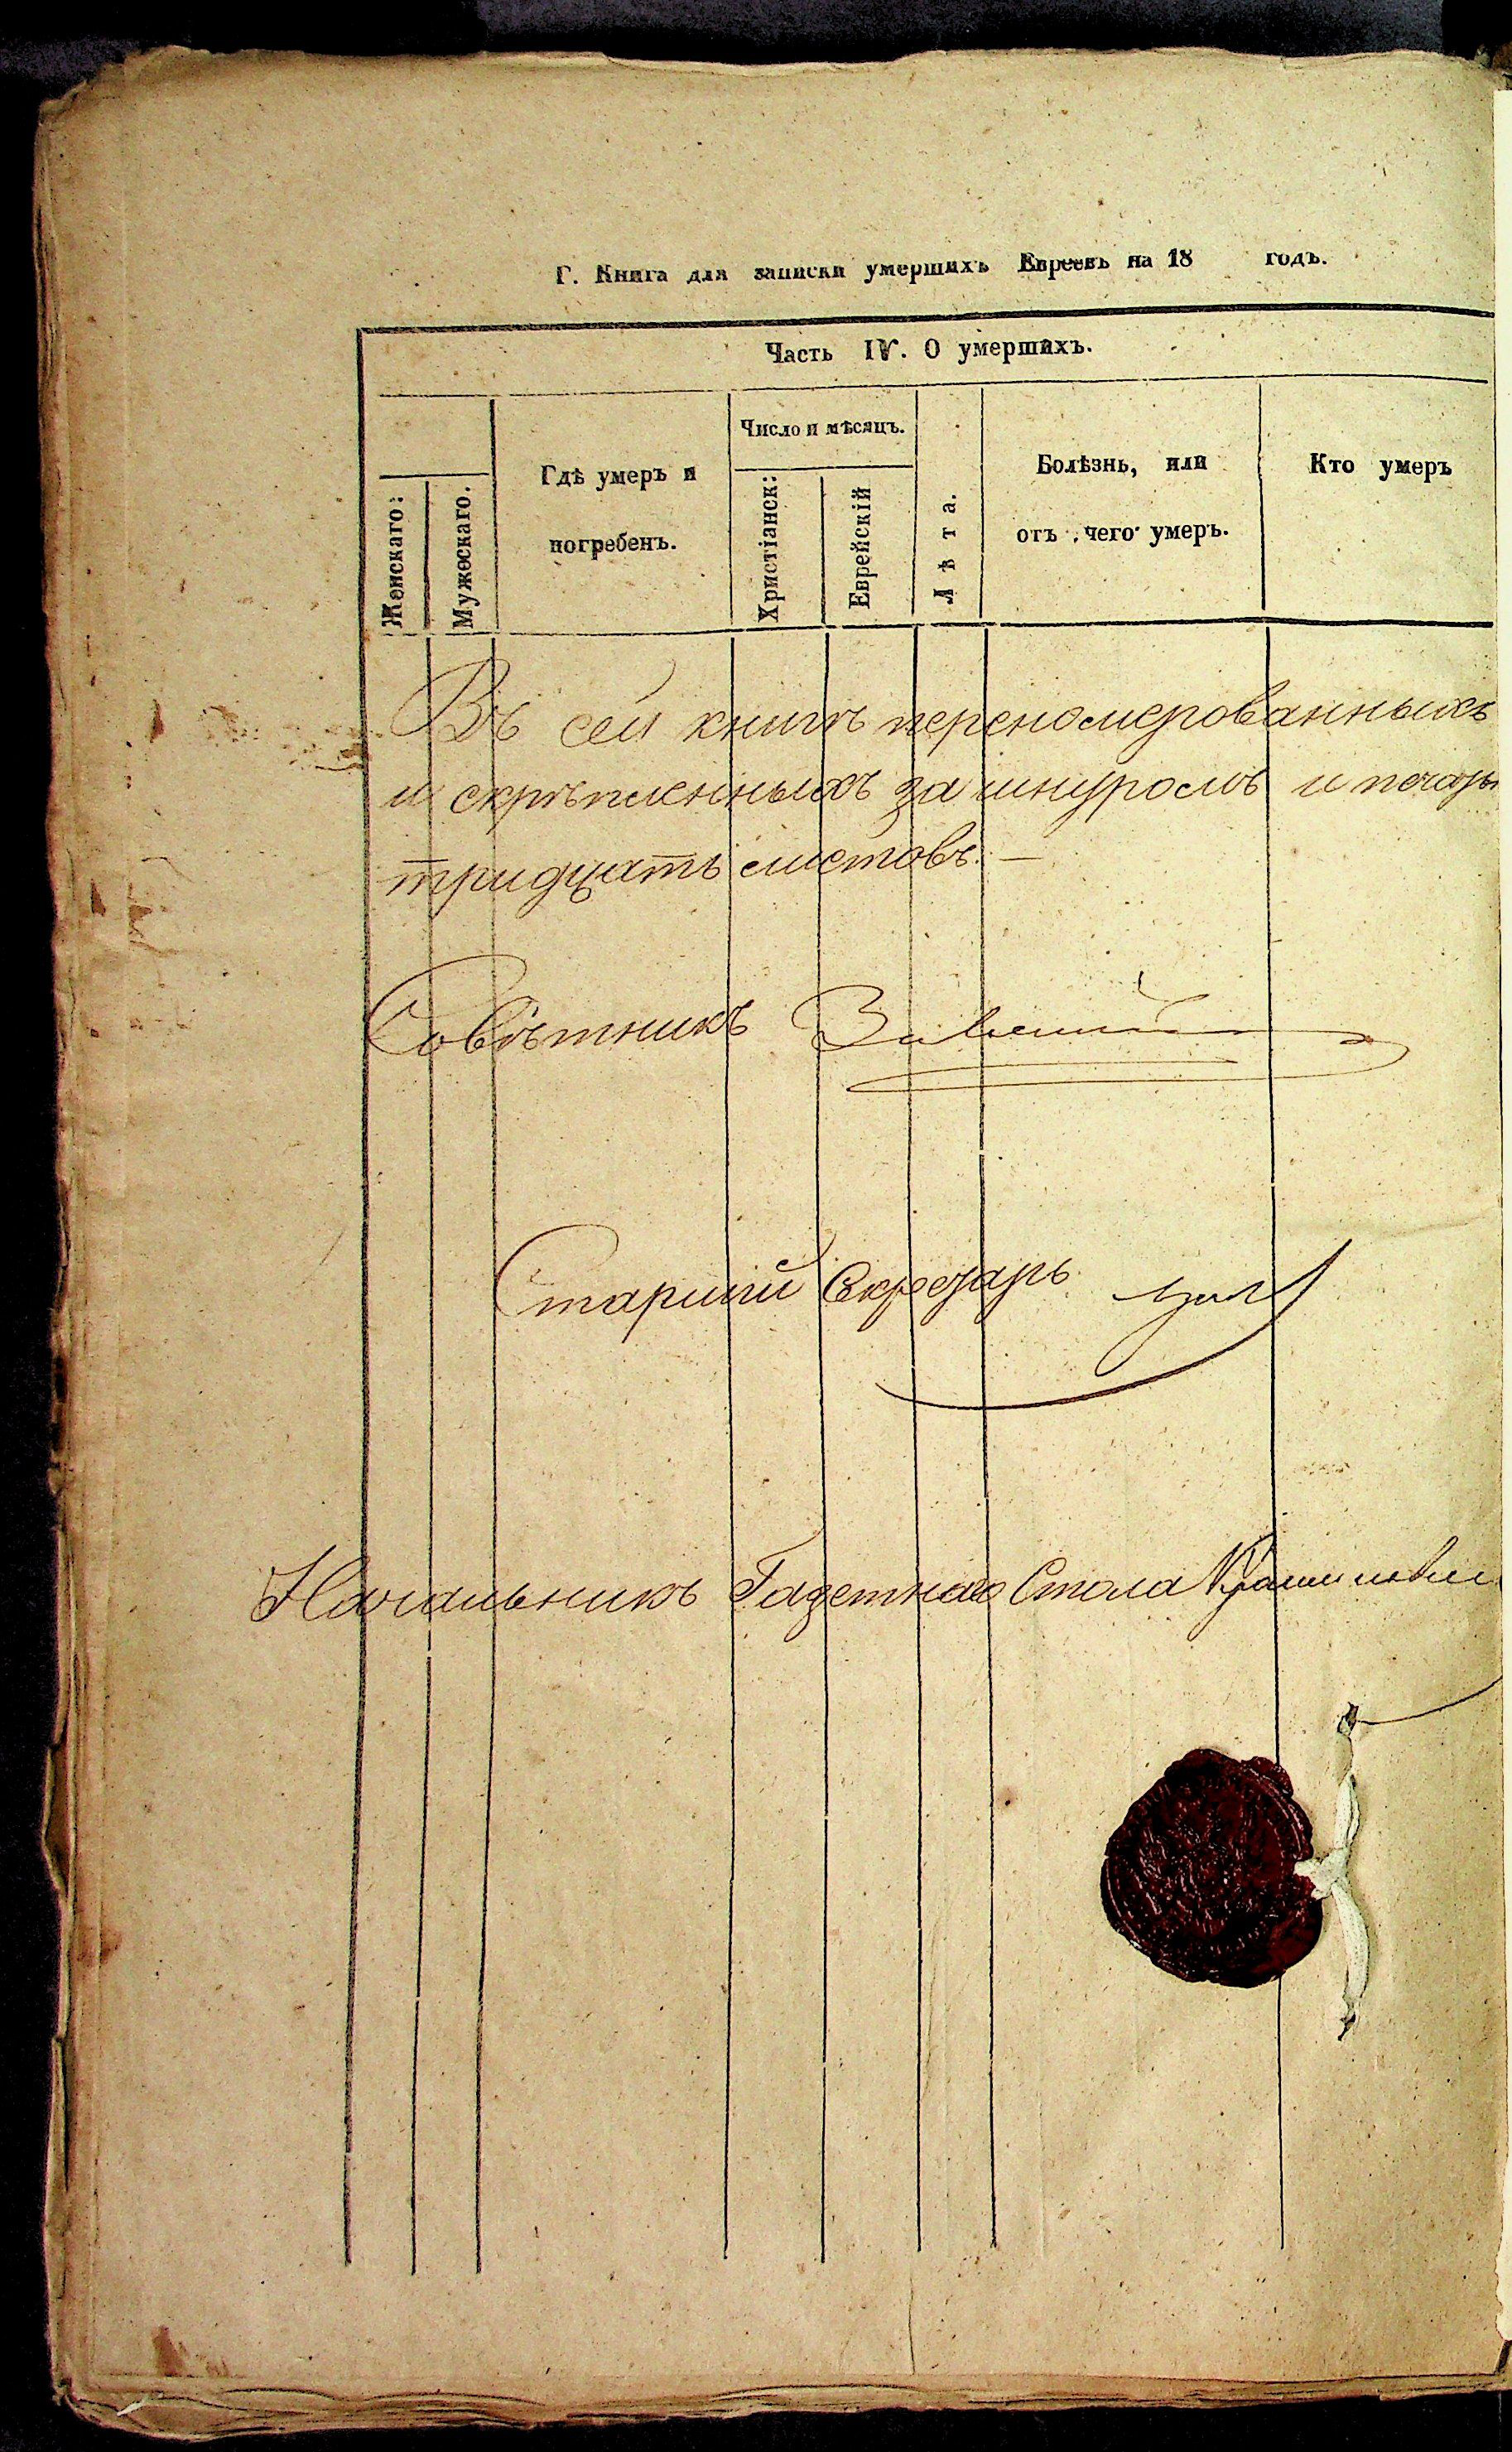 Г. Книга для записки умершихъ Евреевъ на 18 годъ.
Часть IV. О умершихъ.
Женскаго:
Мужескаго.
Гдѣ умеръ и
погребенъ.
Число и мѣсяцъ.
Христіанск:
Еврейскій
Лѣта.
Болѣзнь, или
отъ чего умеръ.
Кто умеръ
Въ сей книгѣ переномерованныхъ
и скрѣпленныхъ за шнуромъ и печатью
тридцать листовъ. —
Совѣтникъ
Старшій Секретарь
Начальникъ Газетнаго Стола